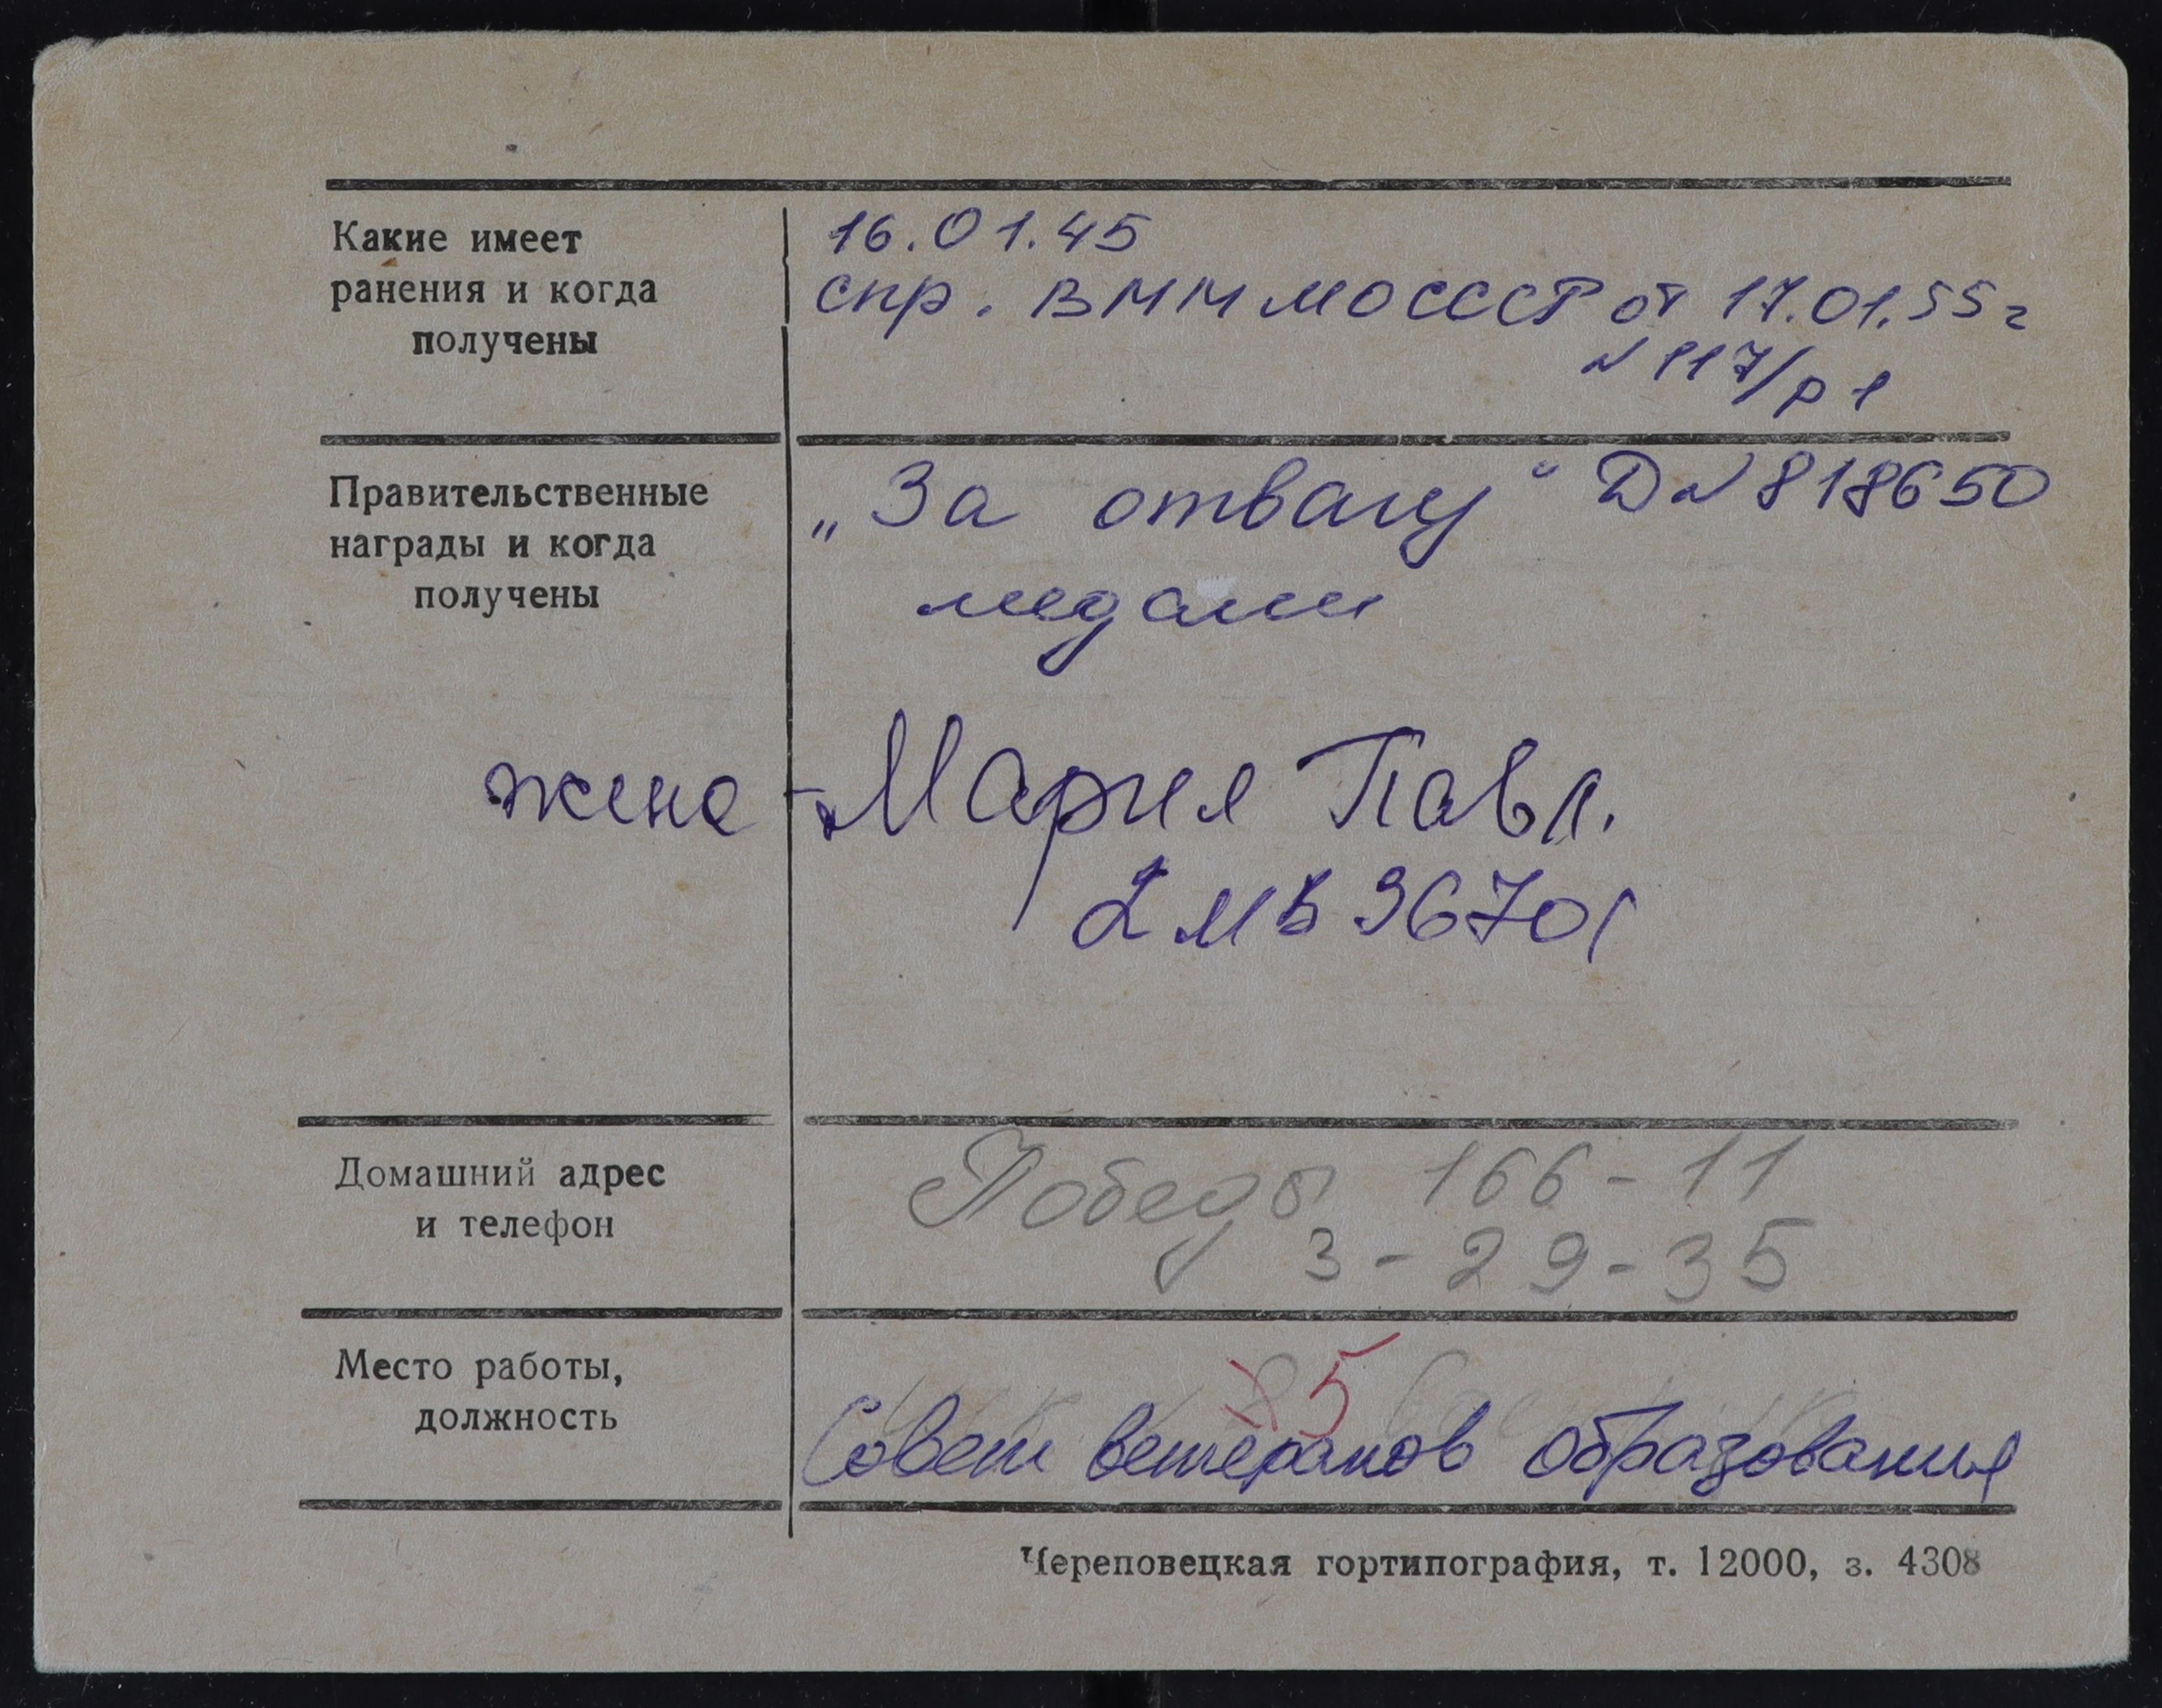 Какие имеет
ранения и когда
получены
16.01.45
спр. ВММ МО СССР от 17.01.55 г
N 117/р 1
Правительственные
награды и когда
получены
„За отвагу“ Д N 818650
медали
жена - Мария Павл.
2 МБ 96701
Домашний адрес
и телефон
Победы 166-11
3-29-35
Место работы,
должность
85
Совет ветеранов образования
Череповецкая гортипография, т. 12000, з. 4308